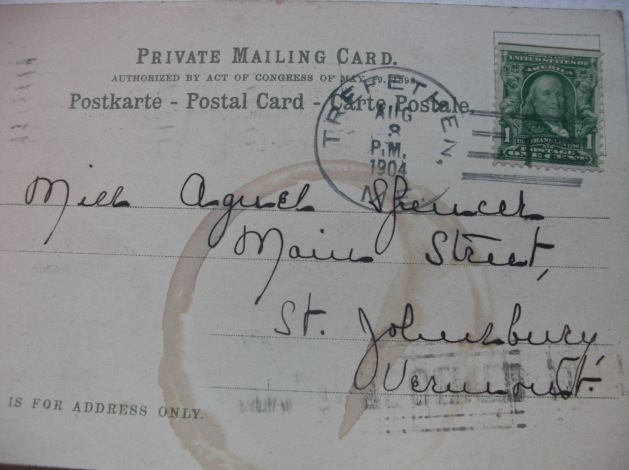 PRIVATE MAILING CARD.
AUTHORIZED BY ACT OF CONGRESS OF MAY 19, 1898.
Postkarte - Postal Card - Carte Postale.
UNITED STATES OF
AMERICA
1 FRANKLIN 1
POSTAGE
ONE CENT
TREPETHEN,
AUG
8
P.M.
1904
Miss Agnes Spencer
Main Street,
St. Johnsbury,
Vermont.
IS FOR ADDRESS ONLY.